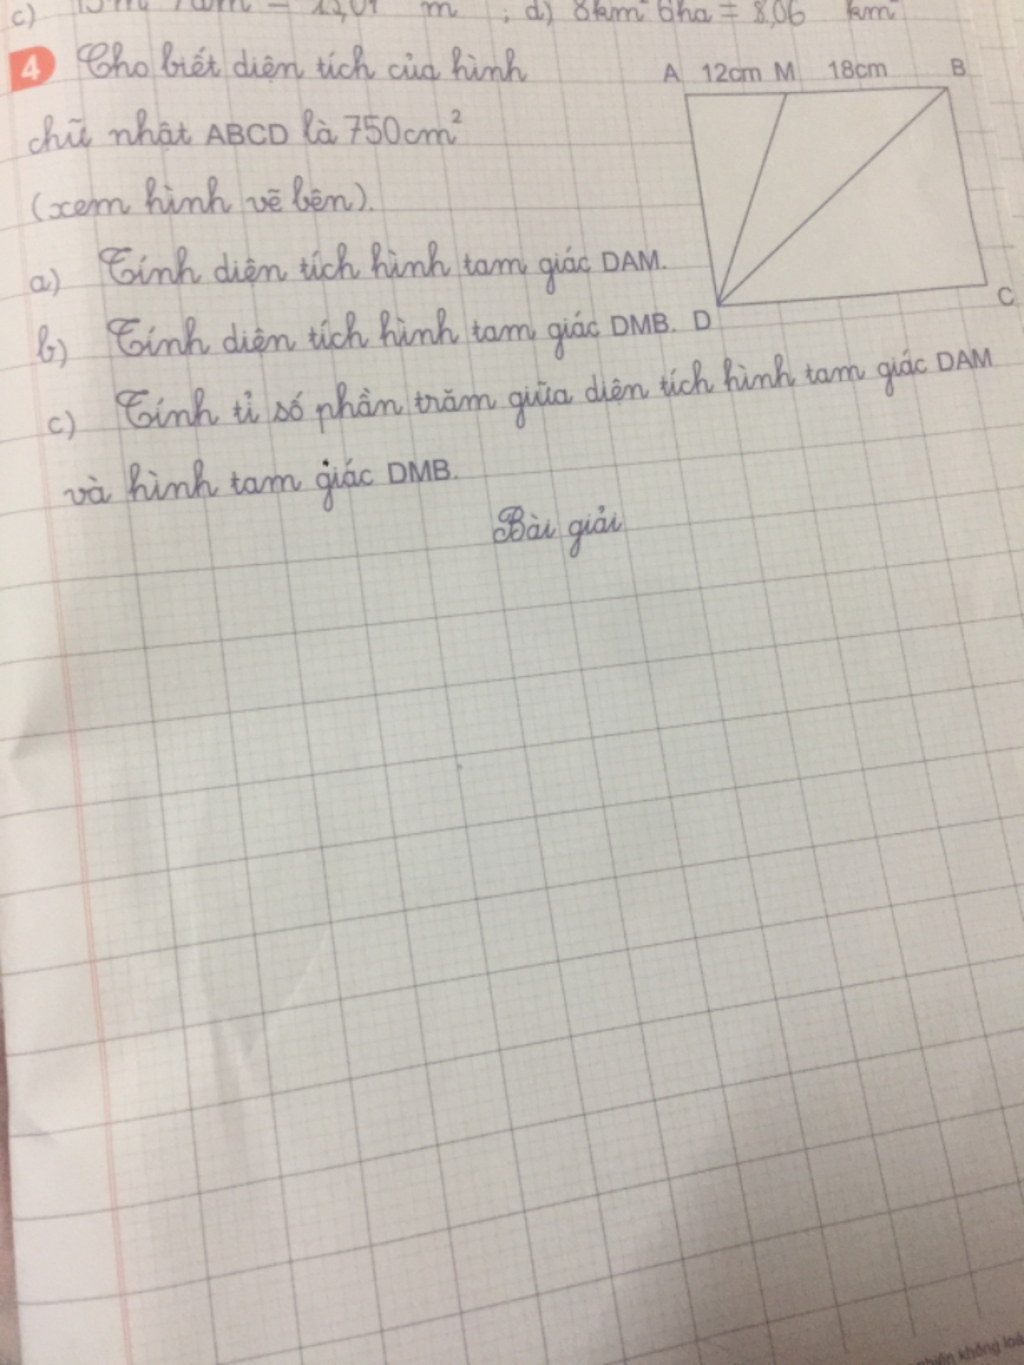 c) = m ; d) 8km² 6ha = 8,06 km²
4 Cho biết diện tích của hình
A 12cm M 18cm B
chữ nhật ABCD là 750cm²
(xem hình vẽ bên).
a) Tính diện tích hình tam giác DAM.
C
b) Tính diện tích hình tam giác DMB. D
c) Tính tỉ số phần trăm giữa diện tích hình tam giác DAM
và hình tam giác DMB.
Bài giải
không